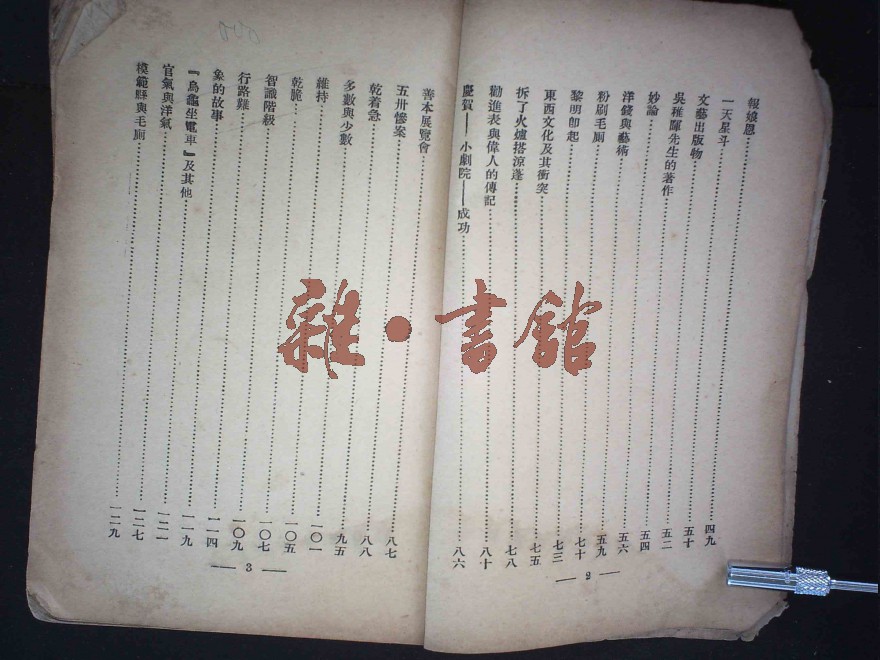 報娘恩……四九
一天星斗……五十
文藝出版物……五二
吳稚暉先生的著作……五四
妙論……五六
洋錢與藝術……五九
粉刷毛厠……七十
黎明卽起……七三
東西文化及其衝突……七五
拆了火爐搭涼蓬……七八
勸進表與偉人的傳記……八十
慶賀——小劇院——成功……八六
— 2 —
善本展覽會……八七
五卅慘案……八八
乾着急……九五
多數與少數……一〇一
維持……一〇五
乾脆……一〇七
智識階級……一〇九
行路難……一一四
象的故事……一一九
『烏龜坐電車』及其他……一二一
官氣與洋氣……一二七
模範縣與毛厠……一二九
— 3 —
雜·書館